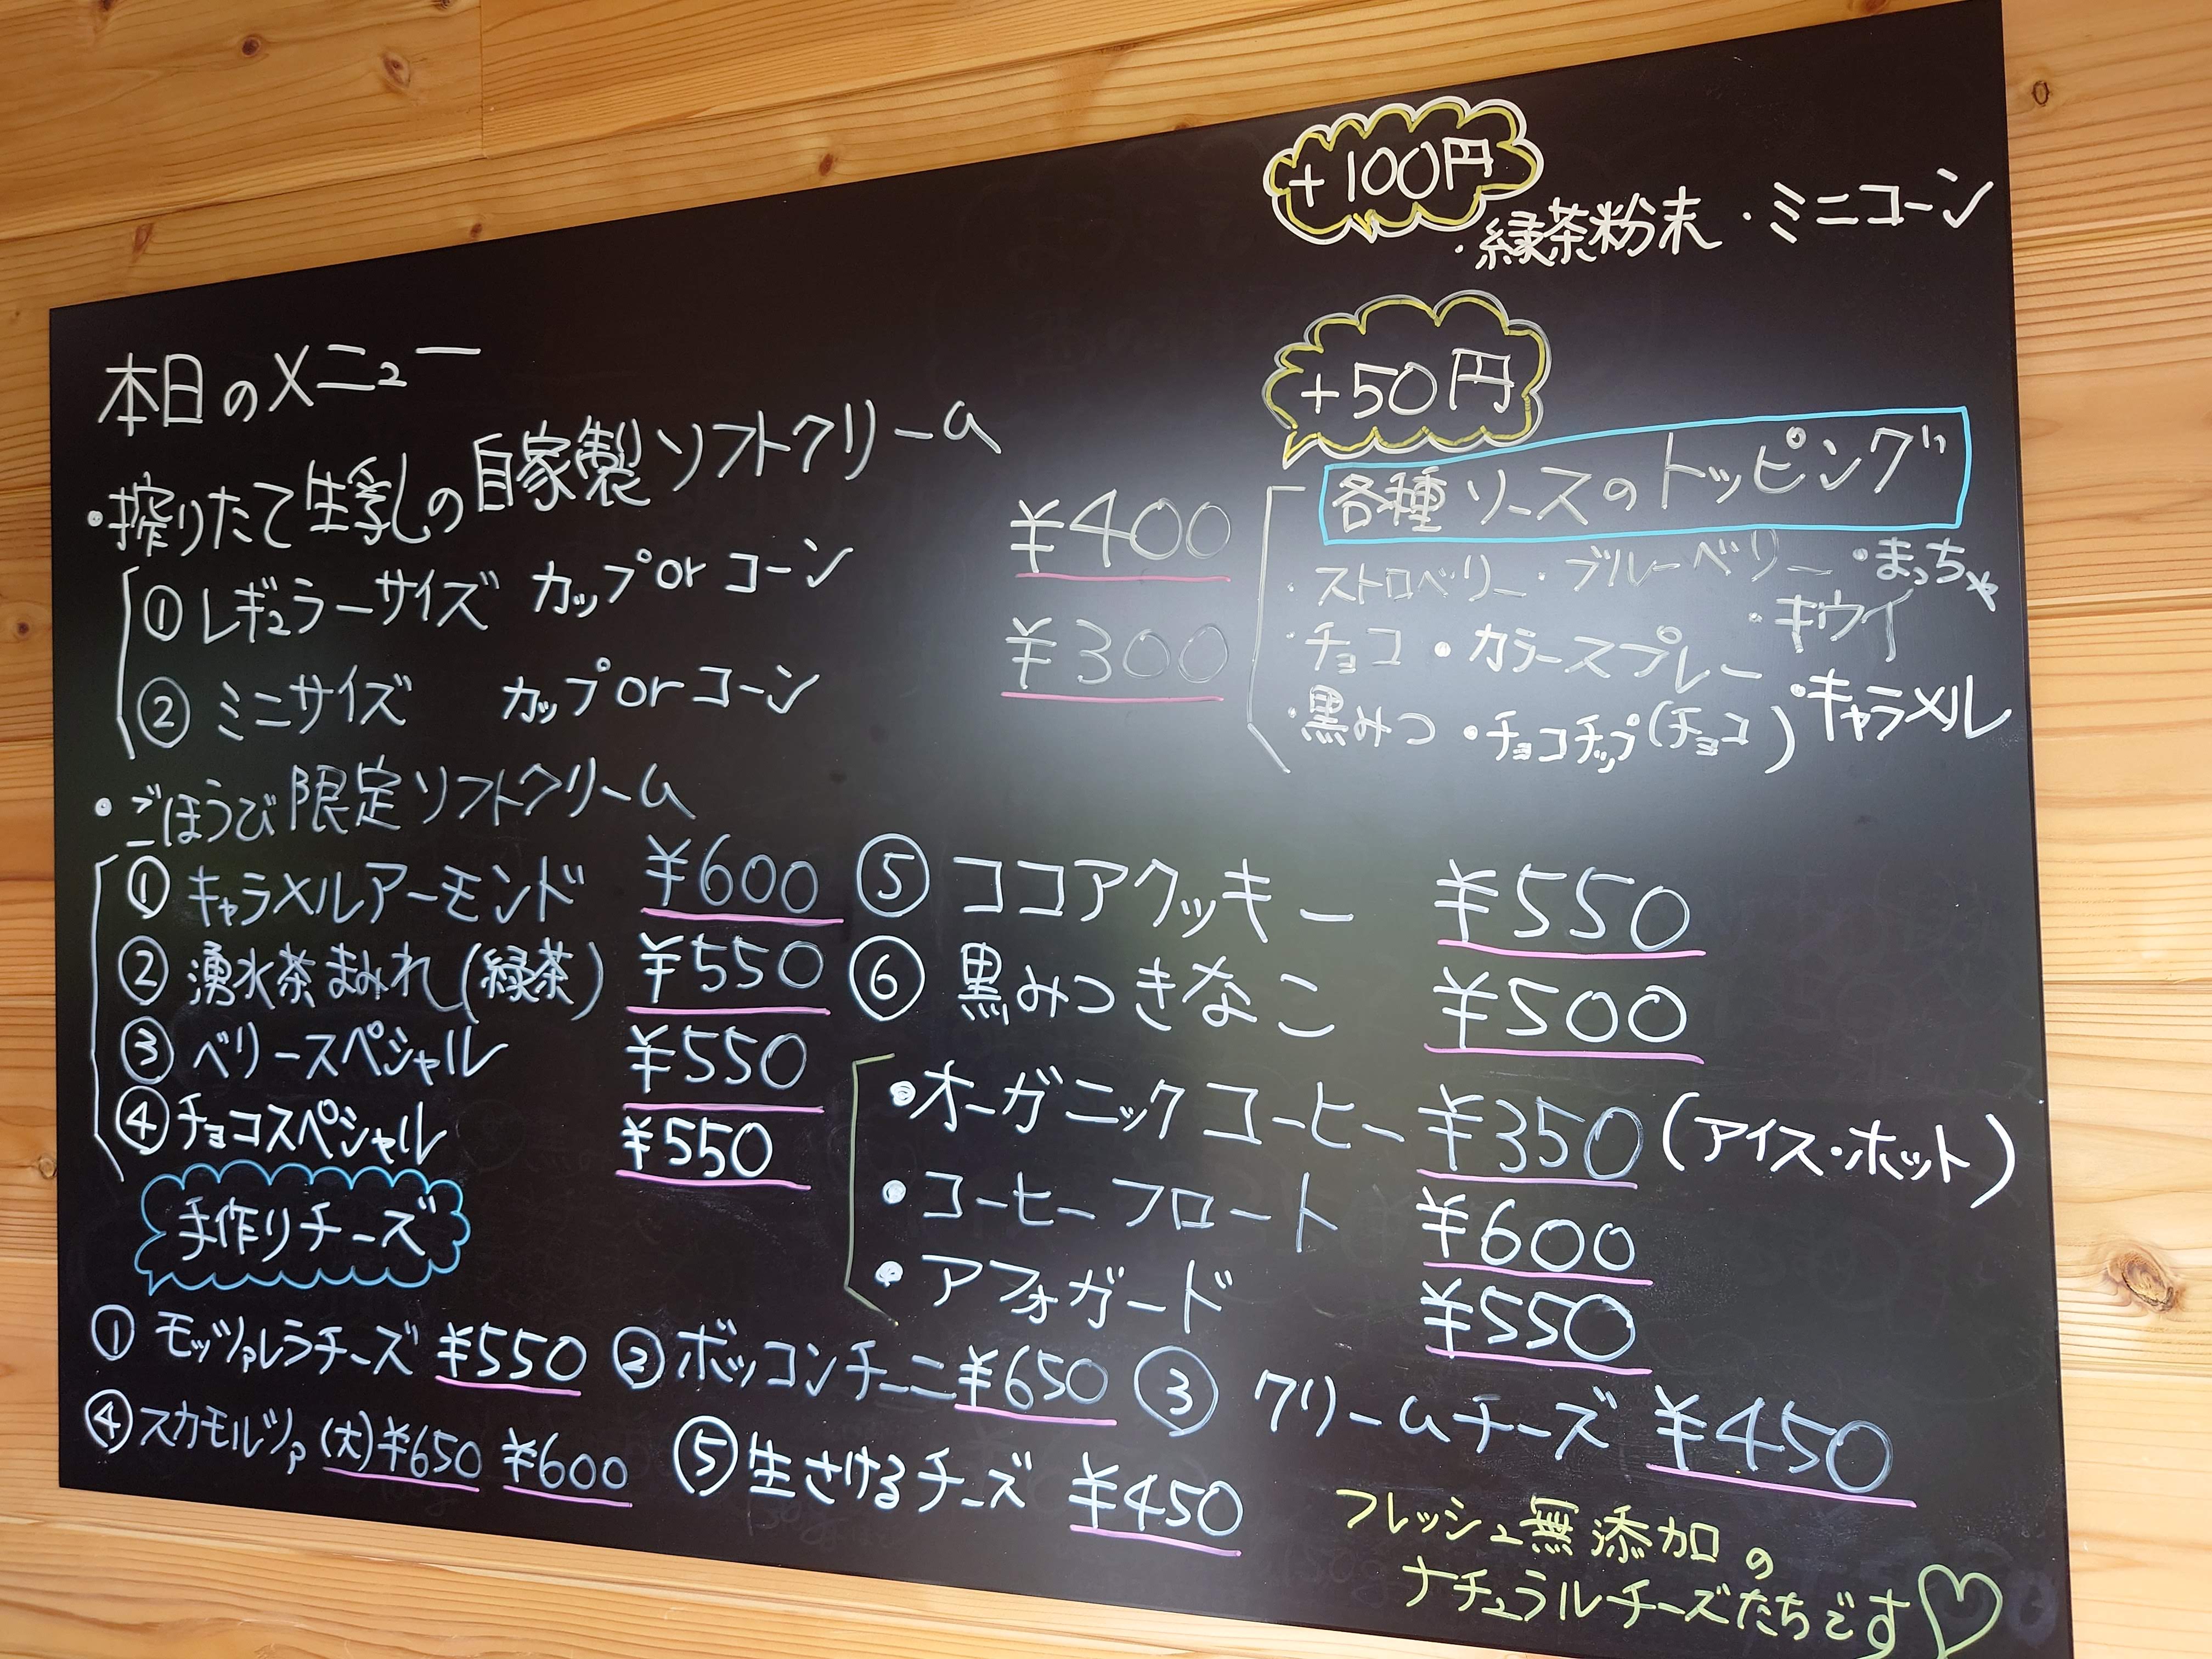 本日のメニュー
・搾りたて生乳の自家製ソフトクリーム
①レギュラーサイズ カップorコーン ¥400
②ミニサイズ カップorコーン ¥300
・ごほうび限定ソフトクリーム
①キャラメルアーモンド ¥600
②湧水茶まみれ(緑茶) ¥550
③ベリースペシャル ¥550
④チョコスペシャル ¥550
⑤ココアクッキー ¥550
⑥黒みつきなこ ¥500
+100円
・緑茶粉末・ミニコーン
+50円
各種ソースのトッピング
・ストロベリー・ブルーベリー・まっちゃ
・チョコ・カラースプレー・キウイ
・黒みつ・チョコチップ(チョコ)・キャラメル
・オーガニックコーヒー ¥350(アイス・ホット)
・コーヒーフロート ¥600
・アフォガード ¥550
手作りチーズ
①モッツァレラチーズ ¥550 ②ボッコンチーニ ¥650 ③クリームチーズ ¥450
④スカモルツァ(大)¥650 ¥600 ⑤生さけるチーズ ¥450
フレッシュ無添加の
ナチュラルチーズたちです♡